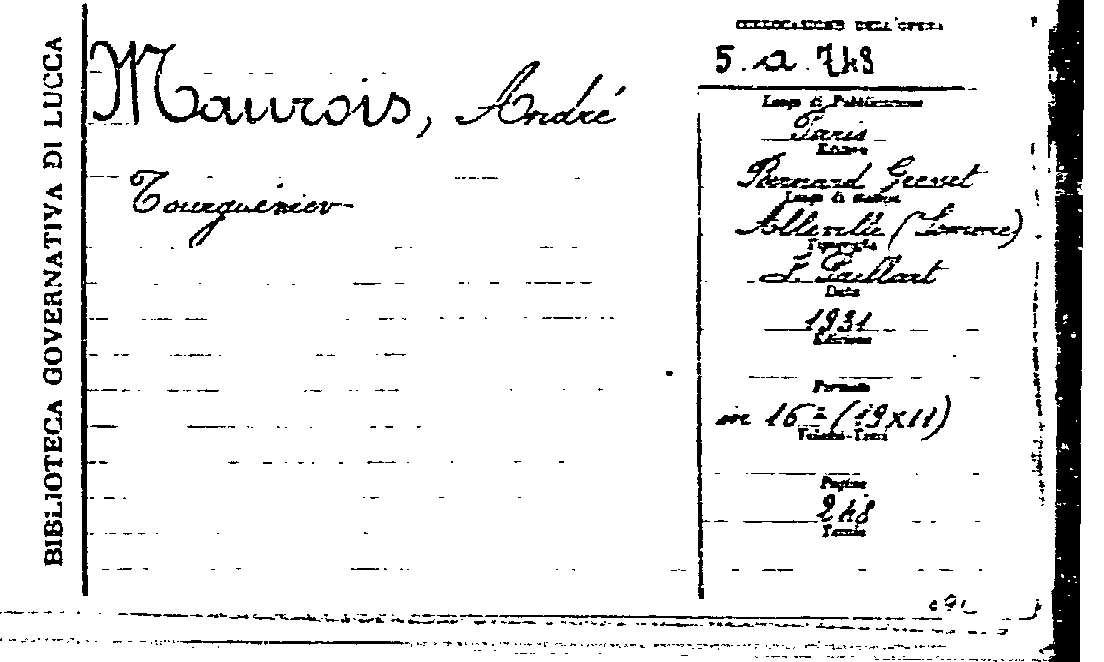 BIBLIOTECA GOVERNATIVA DI LUCCA
Maurois, André
Tourguéniev
COLLOCAZIONE DELL'OPERA
5. a. 748
Luogo di Pubblicazione
Paris
Editore
Bernard Grevet
Luogo di stampa
Abbeville (Somme)
Tipografia
F. Paillart
Data
1931
Edizione
Formato
in 16° (19x11)
Volumi-Tomi
Pagine
248
Tavole